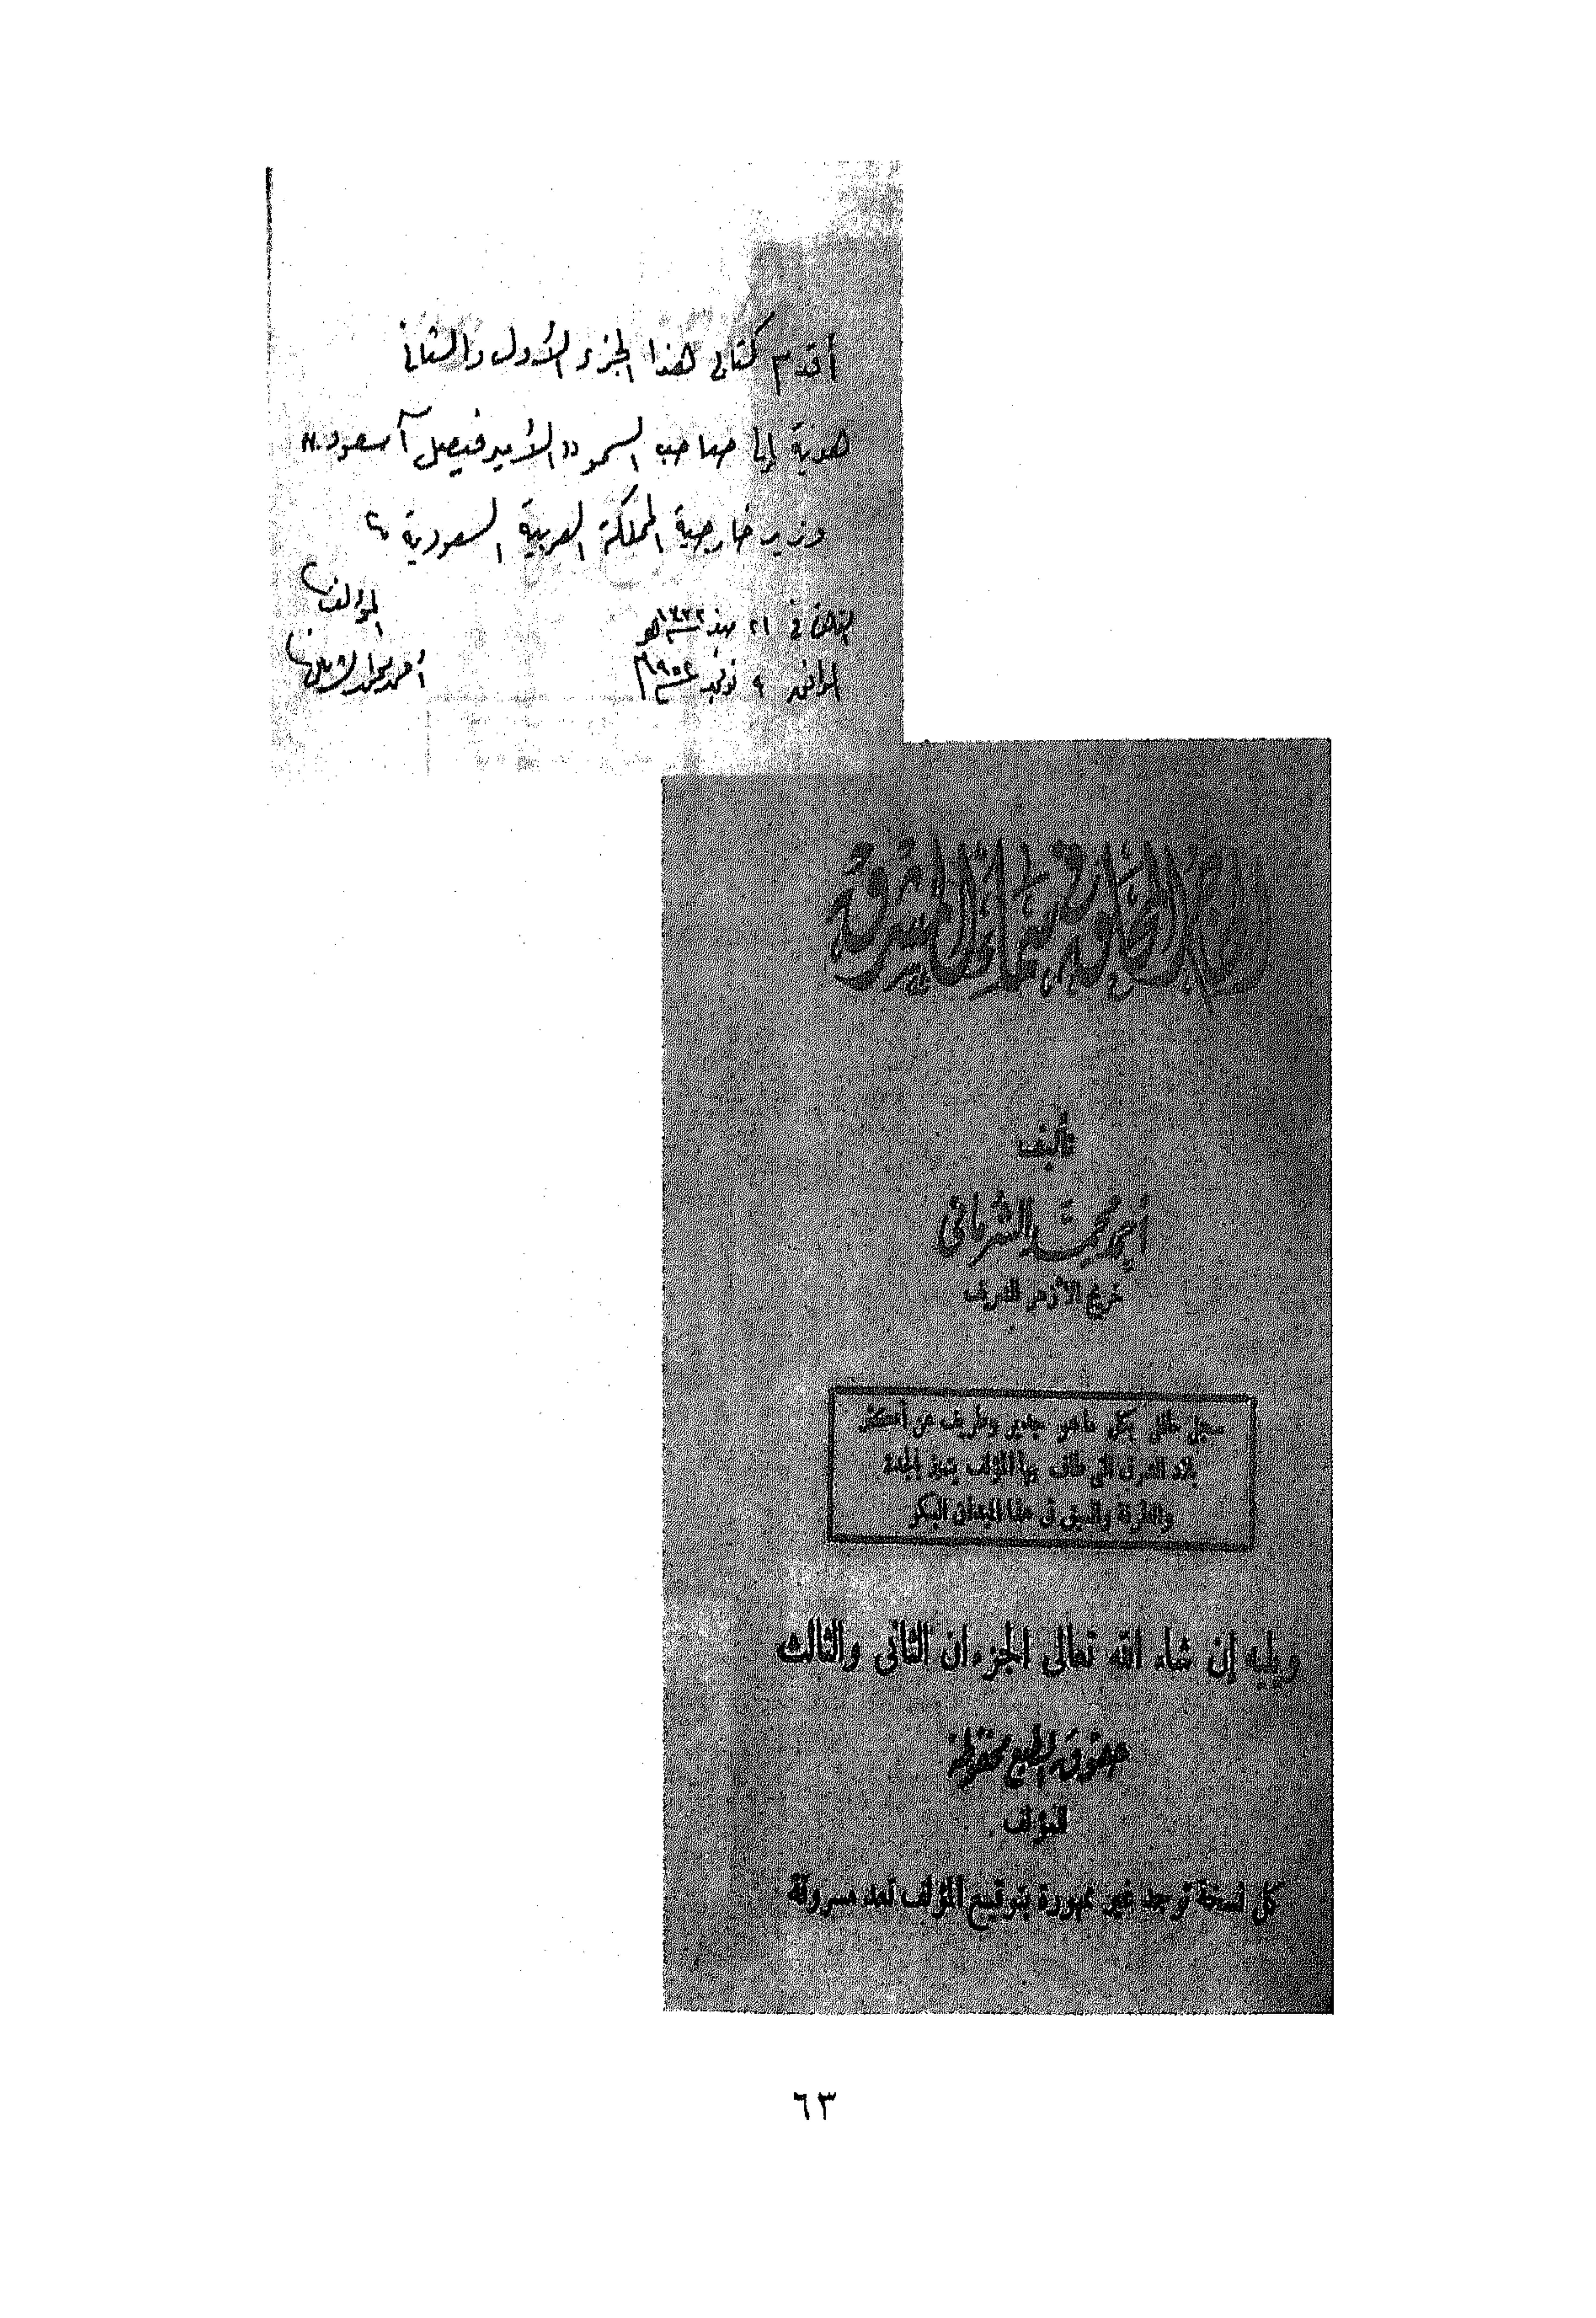 أقدم كتابى هذا الجزء الأول والثانى
هدية إلى صاحب السمو "الأمير فيصل آل سعود"
وزير خارجية المملكة العربية السعودية
المؤلف
القاهرة فى ٢١ سنة هـ
أحمد محمد الشرمانى
الموافق ٩ نوفمبر سنة ١٩٥٢ م
فى سماء المشرق
تأليف
أحمد محمد الشرمانى
خريج الأزهر الشريف
سجل حافل بكل ما هو جدير وطريف عن أكثر
بلاد الشرق التى طاف بها المؤلف يتميز بالجدة
والطرافة والسبق فى هذا الميدان البكر
ويليه إن شاء الله تعالى الجزءان الثانى والثالث
حقوق الطبع محفوظة
للمؤلف
كل نسخة توجد غير ممهورة بتوقيع المؤلف تعد مسروقة
٦٣